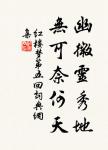 幽微靈秀地
無可奈何天
紅樓夢第五回詞典網
集